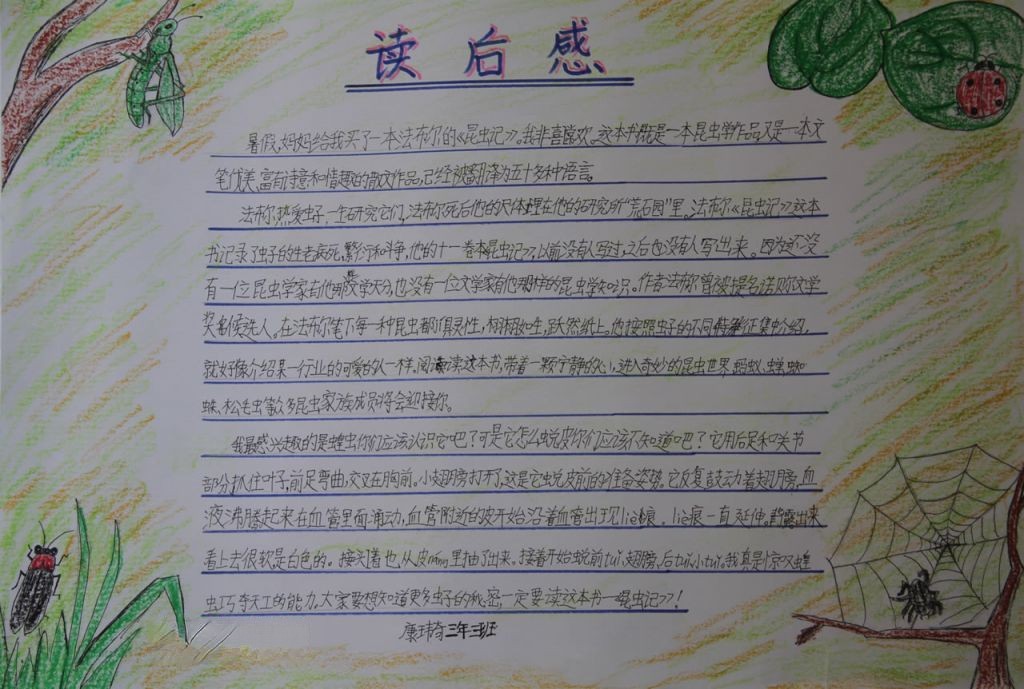 读后感
暑假,妈妈给我买了一本法布尔的《昆虫记》。我非喜欢。这本书既是一本昆虫学作品,又是一本文
笔优美,富有诗意和情趣的散文作品,已经被翻译为五十多种语言。
法布尔,热爱虫子,一生研究它们,法布尔死后他的尸体埋在他的研究所“荒石园”里。法布尔《昆虫记》这本
书记录了虫子的生老病死,繁衍和斗争,他的十一卷本昆虫记》,以前没有人写过,之后也没有人写出来。因为还没
有一位昆虫学家有他那文学天分,也没有一位文学家有他那样的昆虫学知识。作者法布尔曾被提名诺贝尔文学
奖候选人。在法布尔笔下每一种昆虫都有灵性,栩栩如生,跃然纸上。他按照虫子的不同特征集中介绍,
就好像介绍某一行业的可爱的人一样。阅读这本书,带着一颗宁静的心,进入奇妙的昆虫世界,蚂蚁、蜘
蛛、松毛虫等众多昆虫家族成员将会迎接你。
我最感兴趣的是蝗虫你们应该认识它吧?可是它怎么蜕皮你们应该不知道吧?它用后足和关节
部分抓住叶子,前足弯曲,交叉在胸前。小翅膀打开了,这是它蜕皮前的准备姿势。它反复鼓动着翅膀,血
液沸腾起来在血管里面涌动,血管附近的皮开始沿着血管出现liè痕。liè痕一直延伸。背露出来
看上去很软是白色的。接头着也从皮里抽了出来。接着开始蜕前tuǐ,翅膀,后tuǐ,小tuǐ。我真是惊叹蝗
虫巧夺天工的能力。大家要想知道更多虫子的秘密,一定要读这本书—昆虫记》!
康玮奇三年三班